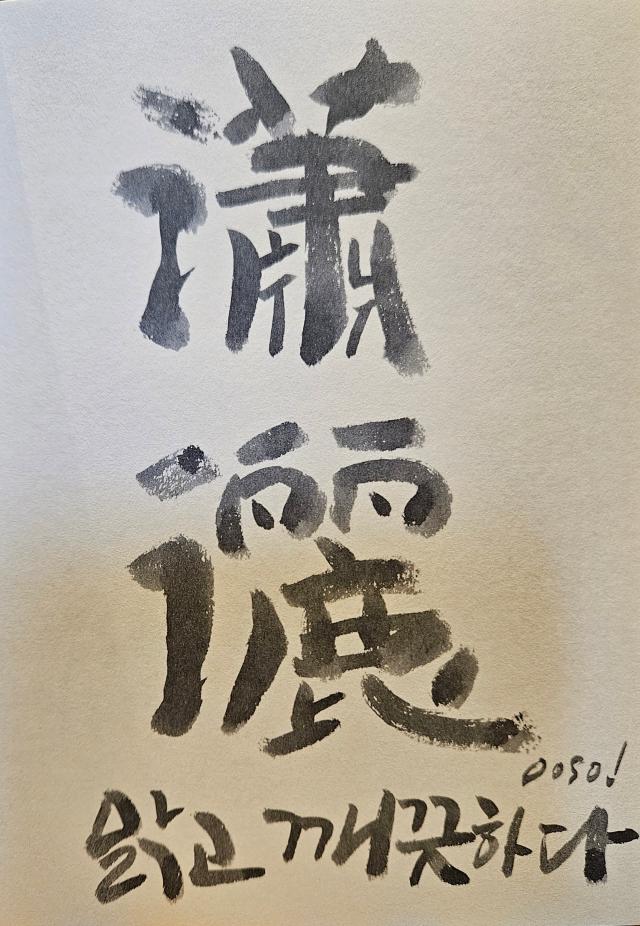 瀟
灑
ooso!
맑고 깨끗하다